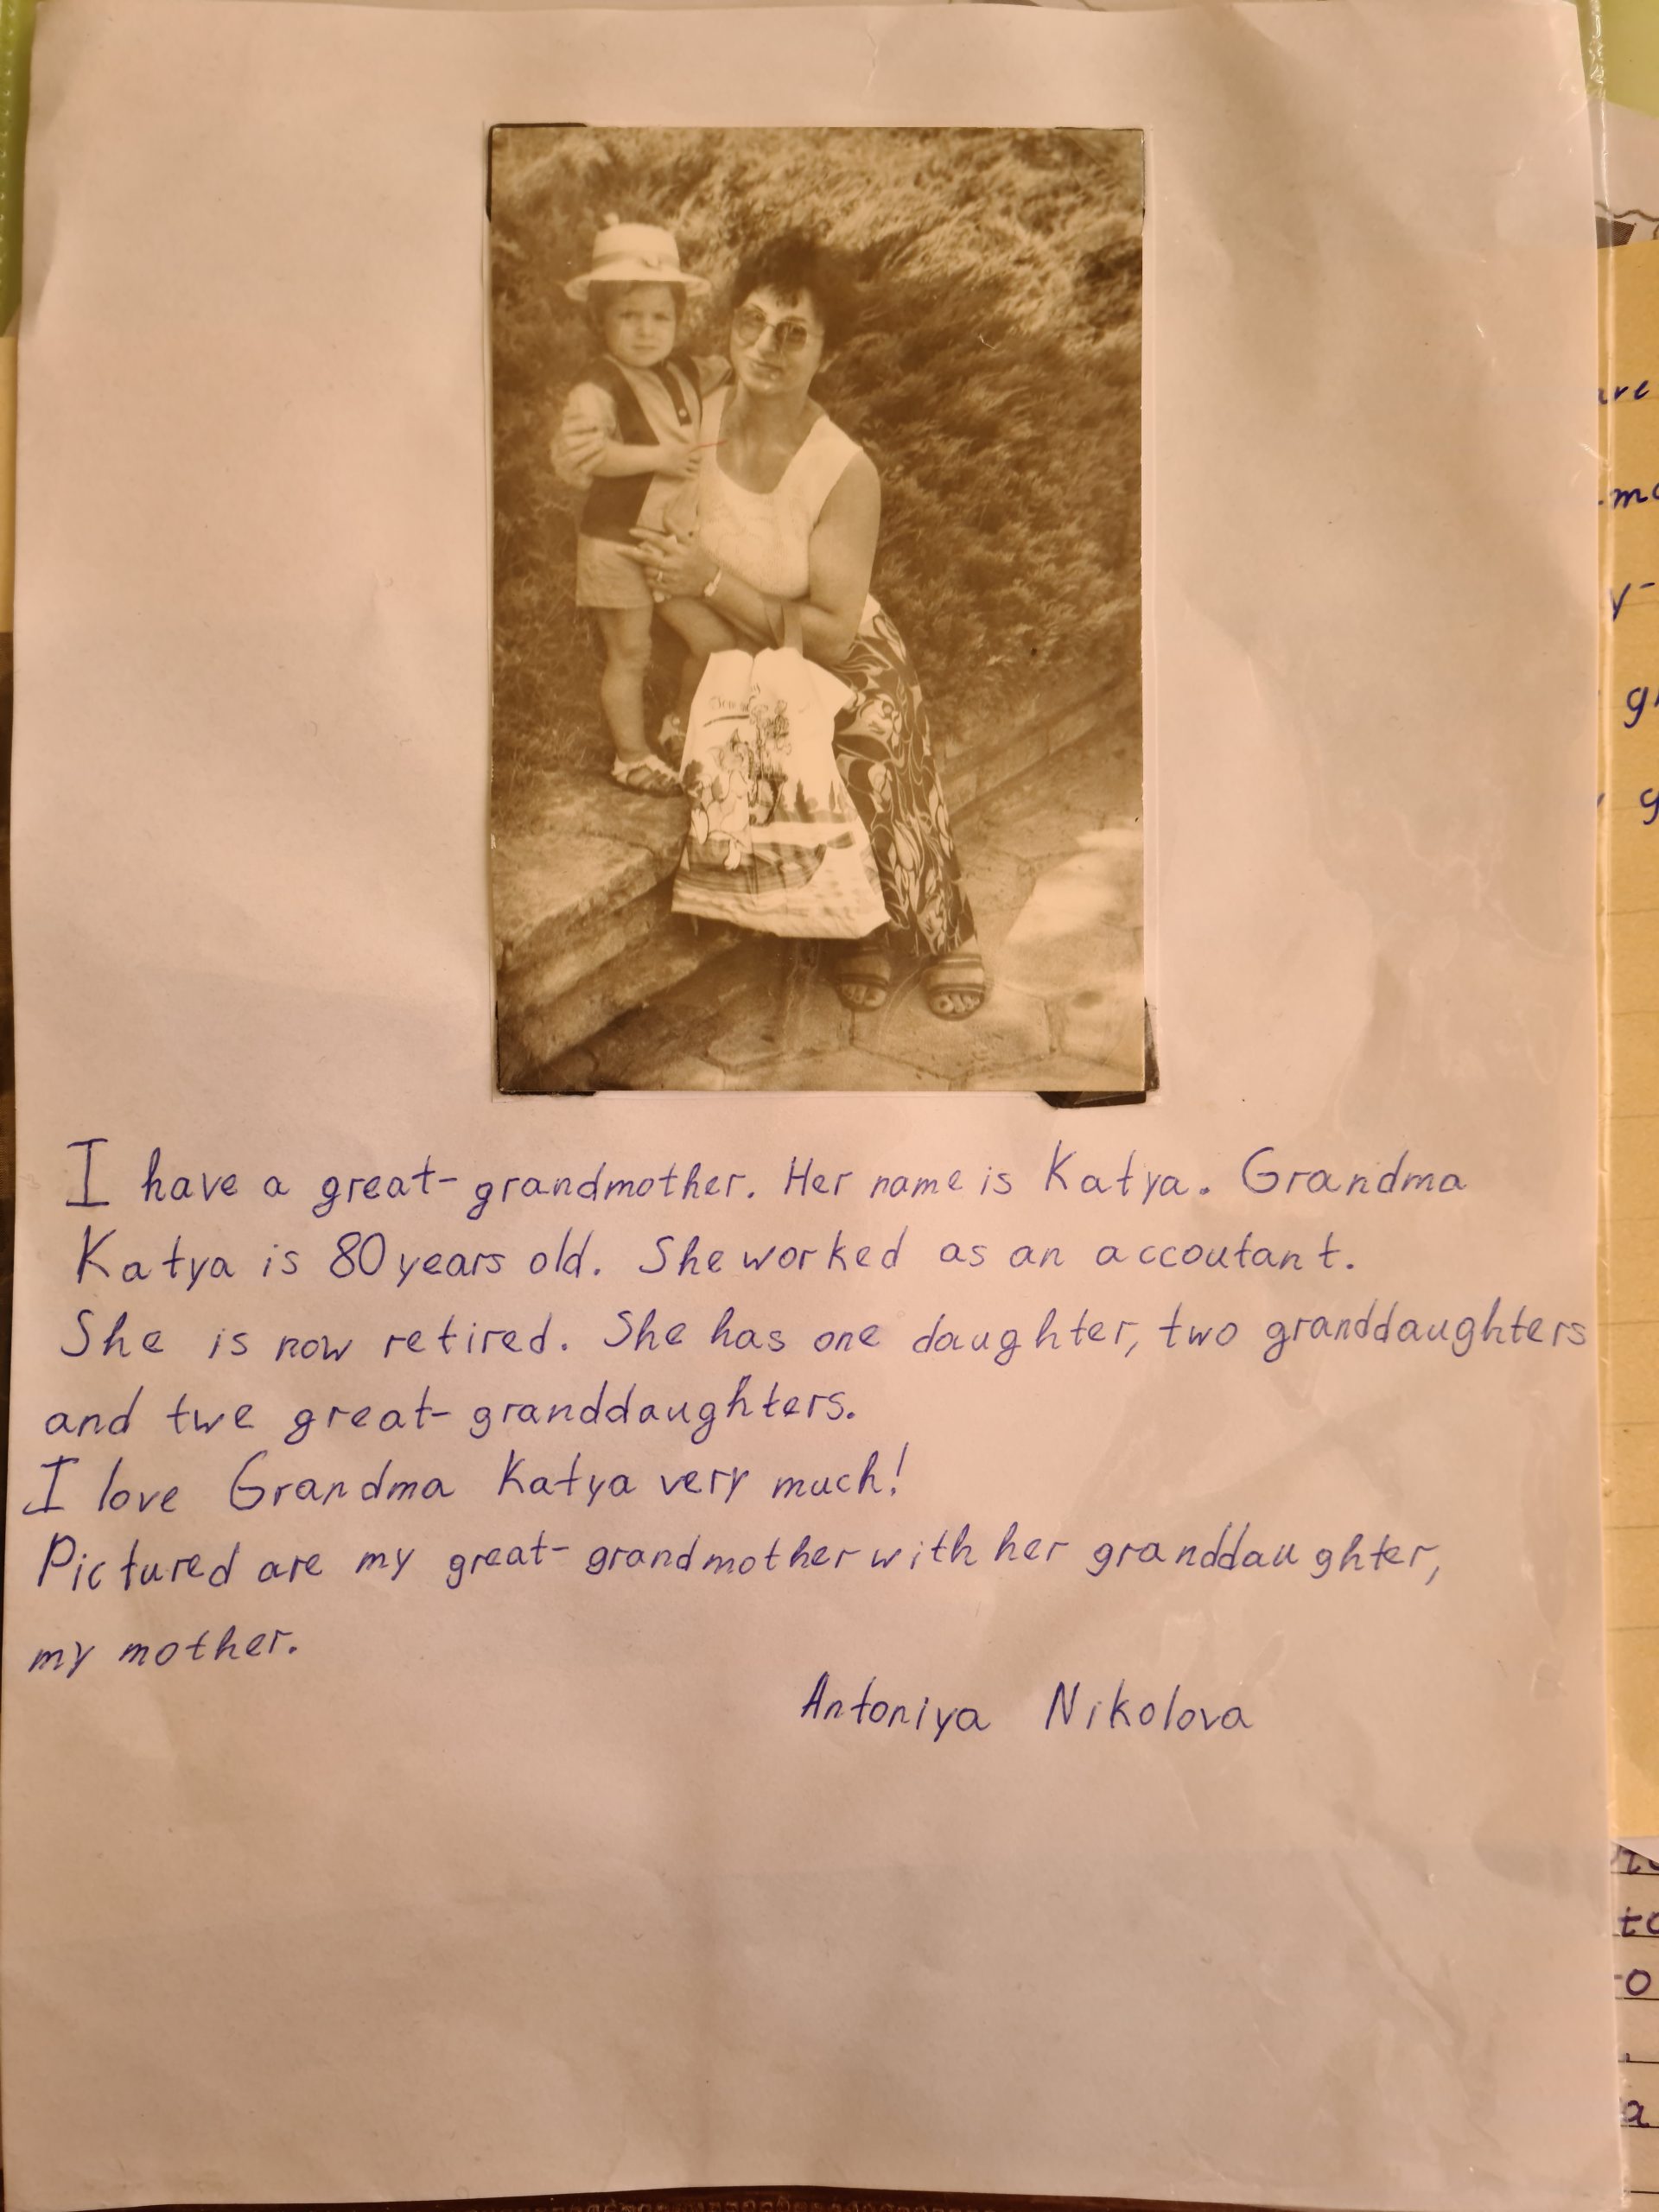 I have a great-grandmother. Her name is Katya. Grandma
Katya is 80 years old. She worked as an accoutant.
She is now retired. She has one daughter, two granddaughters
and twe great-granddaughters.
I love Grandma Katya very much!
Pictured are my great-grandmother with her granddaughter,
my mother.
Antoniya Nikolova